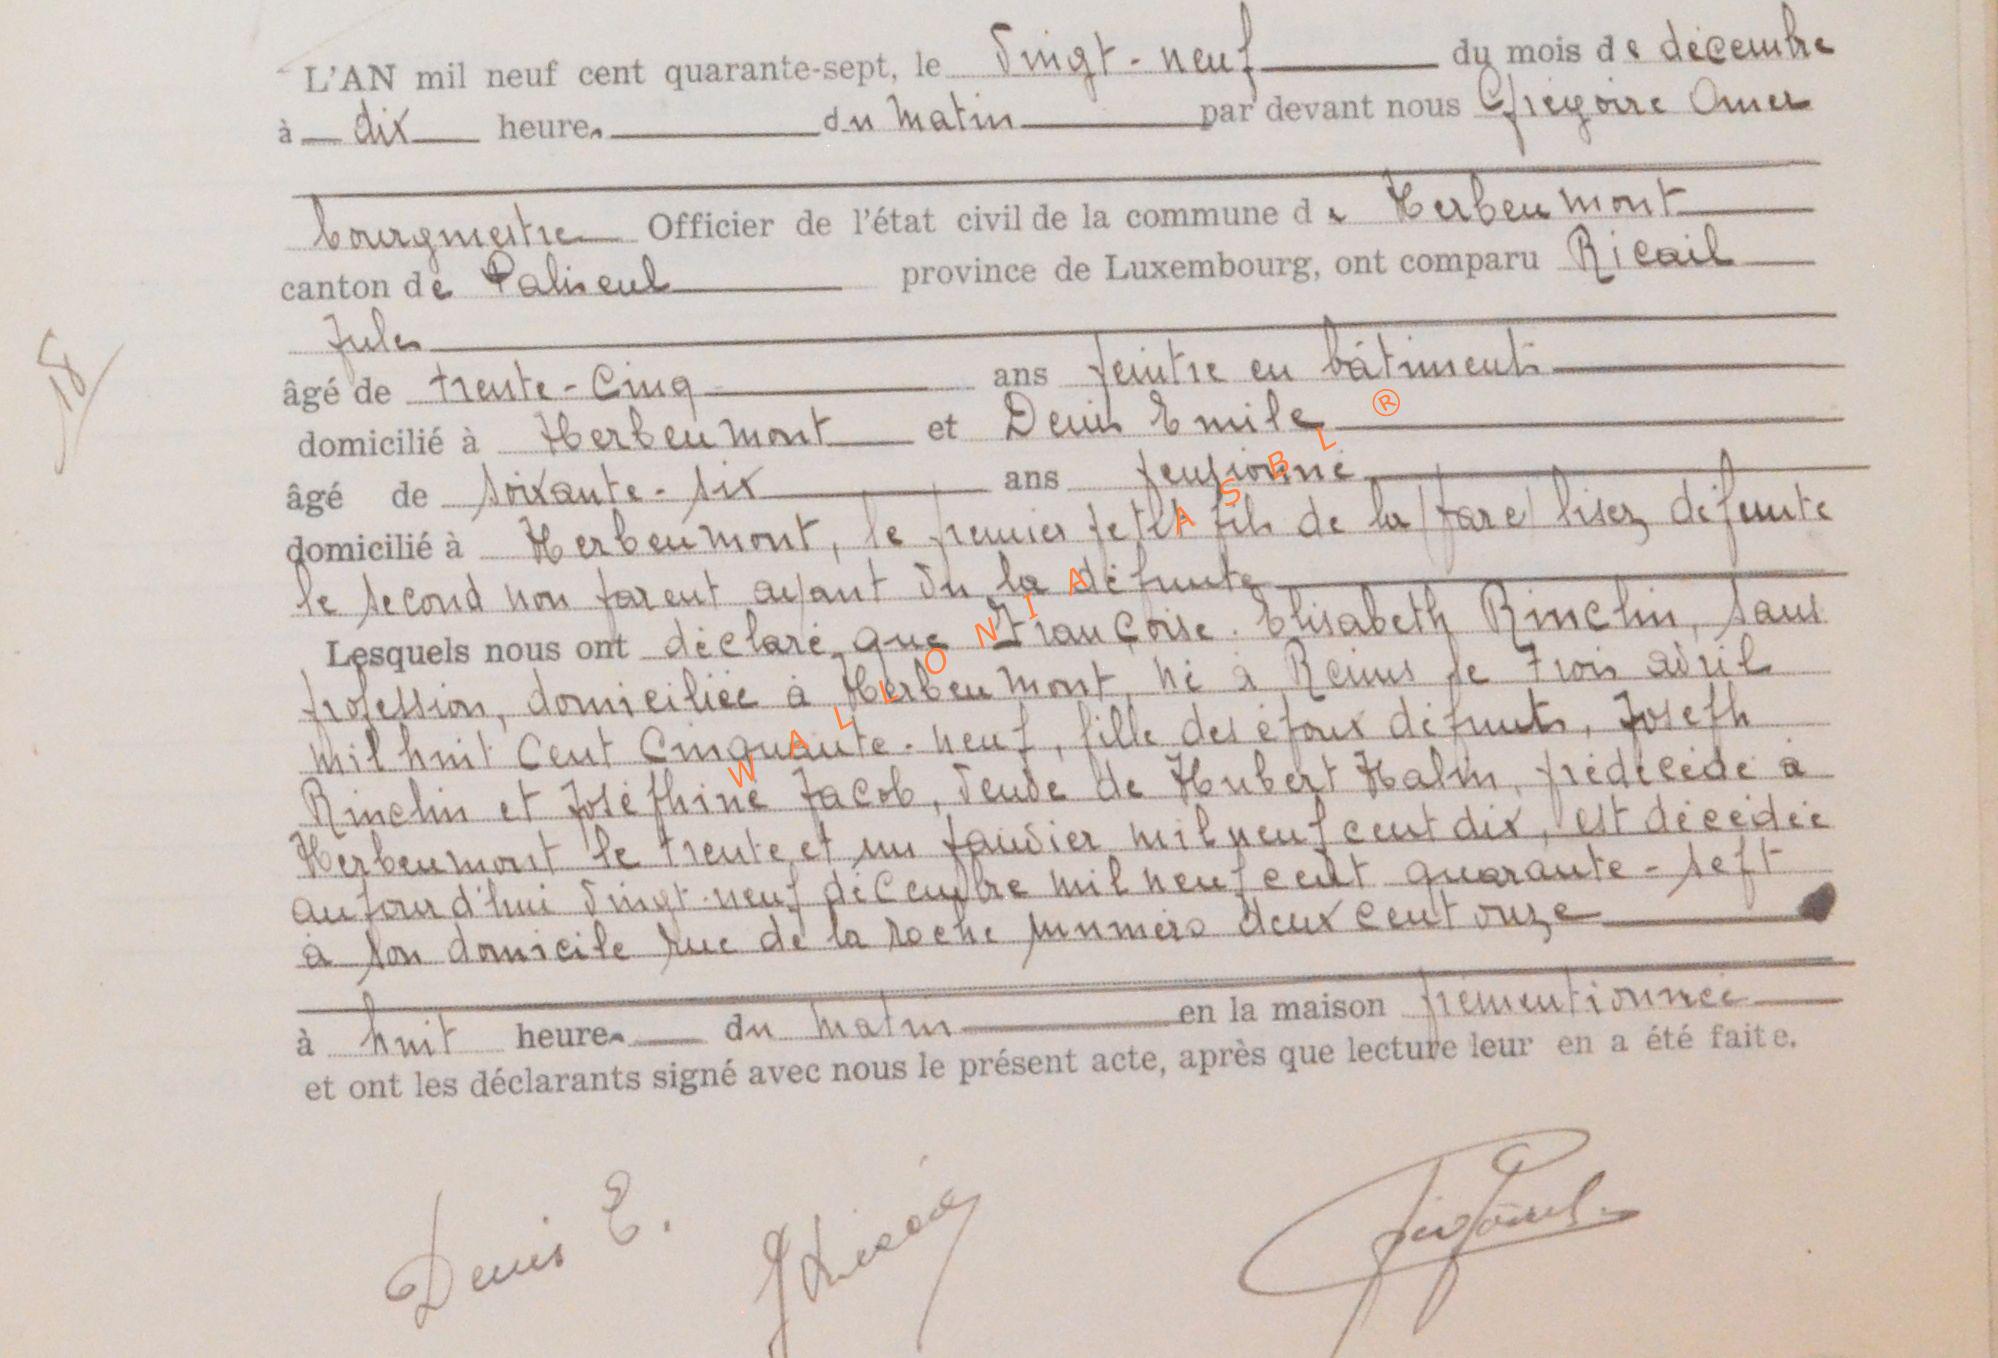 L'AN mil neuf cent quarante-sept, le vingt-neuf du mois de décembre
à dix heures du matin par devant nous Grégoire Omer
bourgmestre Officier de l'état civil de la commune de Herbeumont
canton de Paliseul province de Luxembourg, ont comparu Ricail
Jules
âgé de trente-cinq ans peintre en bâtiments
domicilié à Herbeumont et Denis Emile
âgé de soixante-six ans pensionné
domicilié à Herbeumont, le premier petit fils de la (pare) lisez défunte
le second non parent ayant vu la défunte
Lesquels nous ont déclaré que Françoise-Elisabeth Rinchin, sans
profession, domiciliée à Herbeumont, né à Reims le trois avril
mil huit cent cinquante-neuf, fille des époux défunts, Joseph
Rinchin et Joséphine Jacob, veuve de Hubert Halin, prédécédé à
Herbeumont le trente et un janvier mil neuf cent dix, est décédée
aujourd'hui vingt-neuf décembre mil neuf cent quarante-sept
à son domicile rue de la roche numméro deux cent onze
à huit heures du matin en la maison prémentionnée
et ont les déclarants signé avec nous le présent acte, après que lecture leur en a été faite.
Denis E.
18
WALLONIA ASBL ®